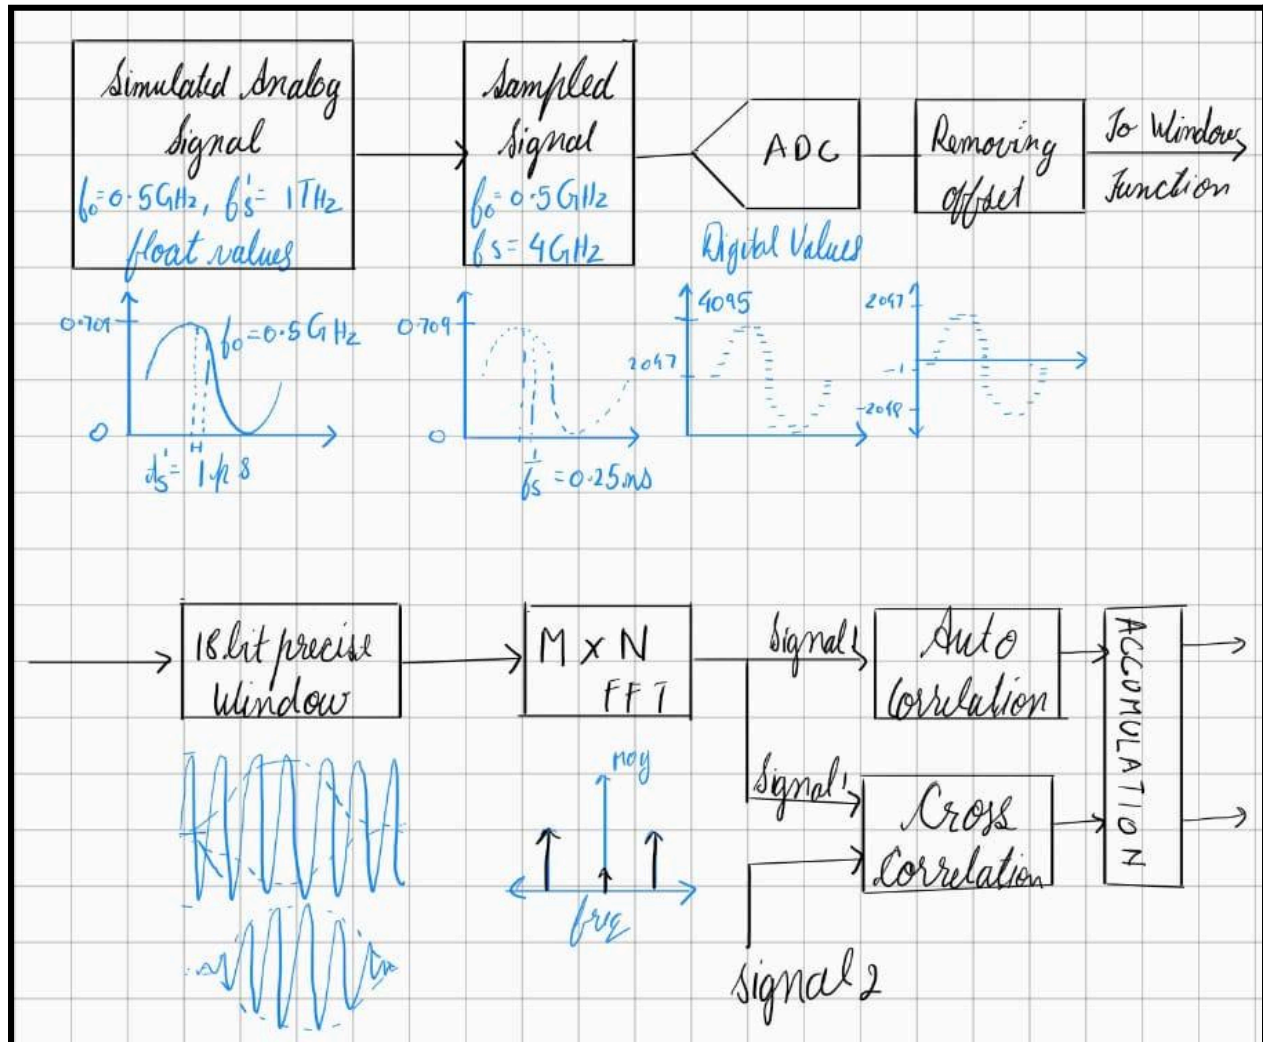 Simulated Analog
Signal
f₀=0.5GHz, fs'= 1THz
float values
Sampled
Signal
f₀= 0.5GHz
fs= 4GHz
ADC
Digital Values
Removing
offset
To Window
Function
0.709
f₀=0.5GHz
0
ts'= 1ps
0.709
0
1/fs = 0.25ns
4095
2047
2047
-1
-2048
18 bit precise
Window
M x N
FFT
mag
freq
Signal 1
Auto
Correlation
Signal 1
Cross
Correlation
Signal 2
ACCUMULATION